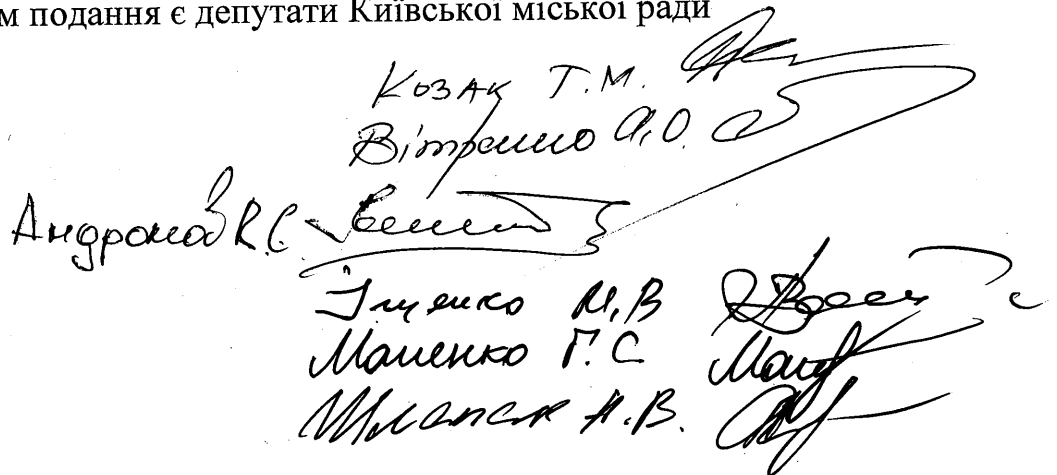 м подання є депутати Київської міської ради
Козак Т.М.
Вітренко А.О.
Андронов В.Є.
Іщенко М.В
Маленко Г.С
Шлапак А.В.